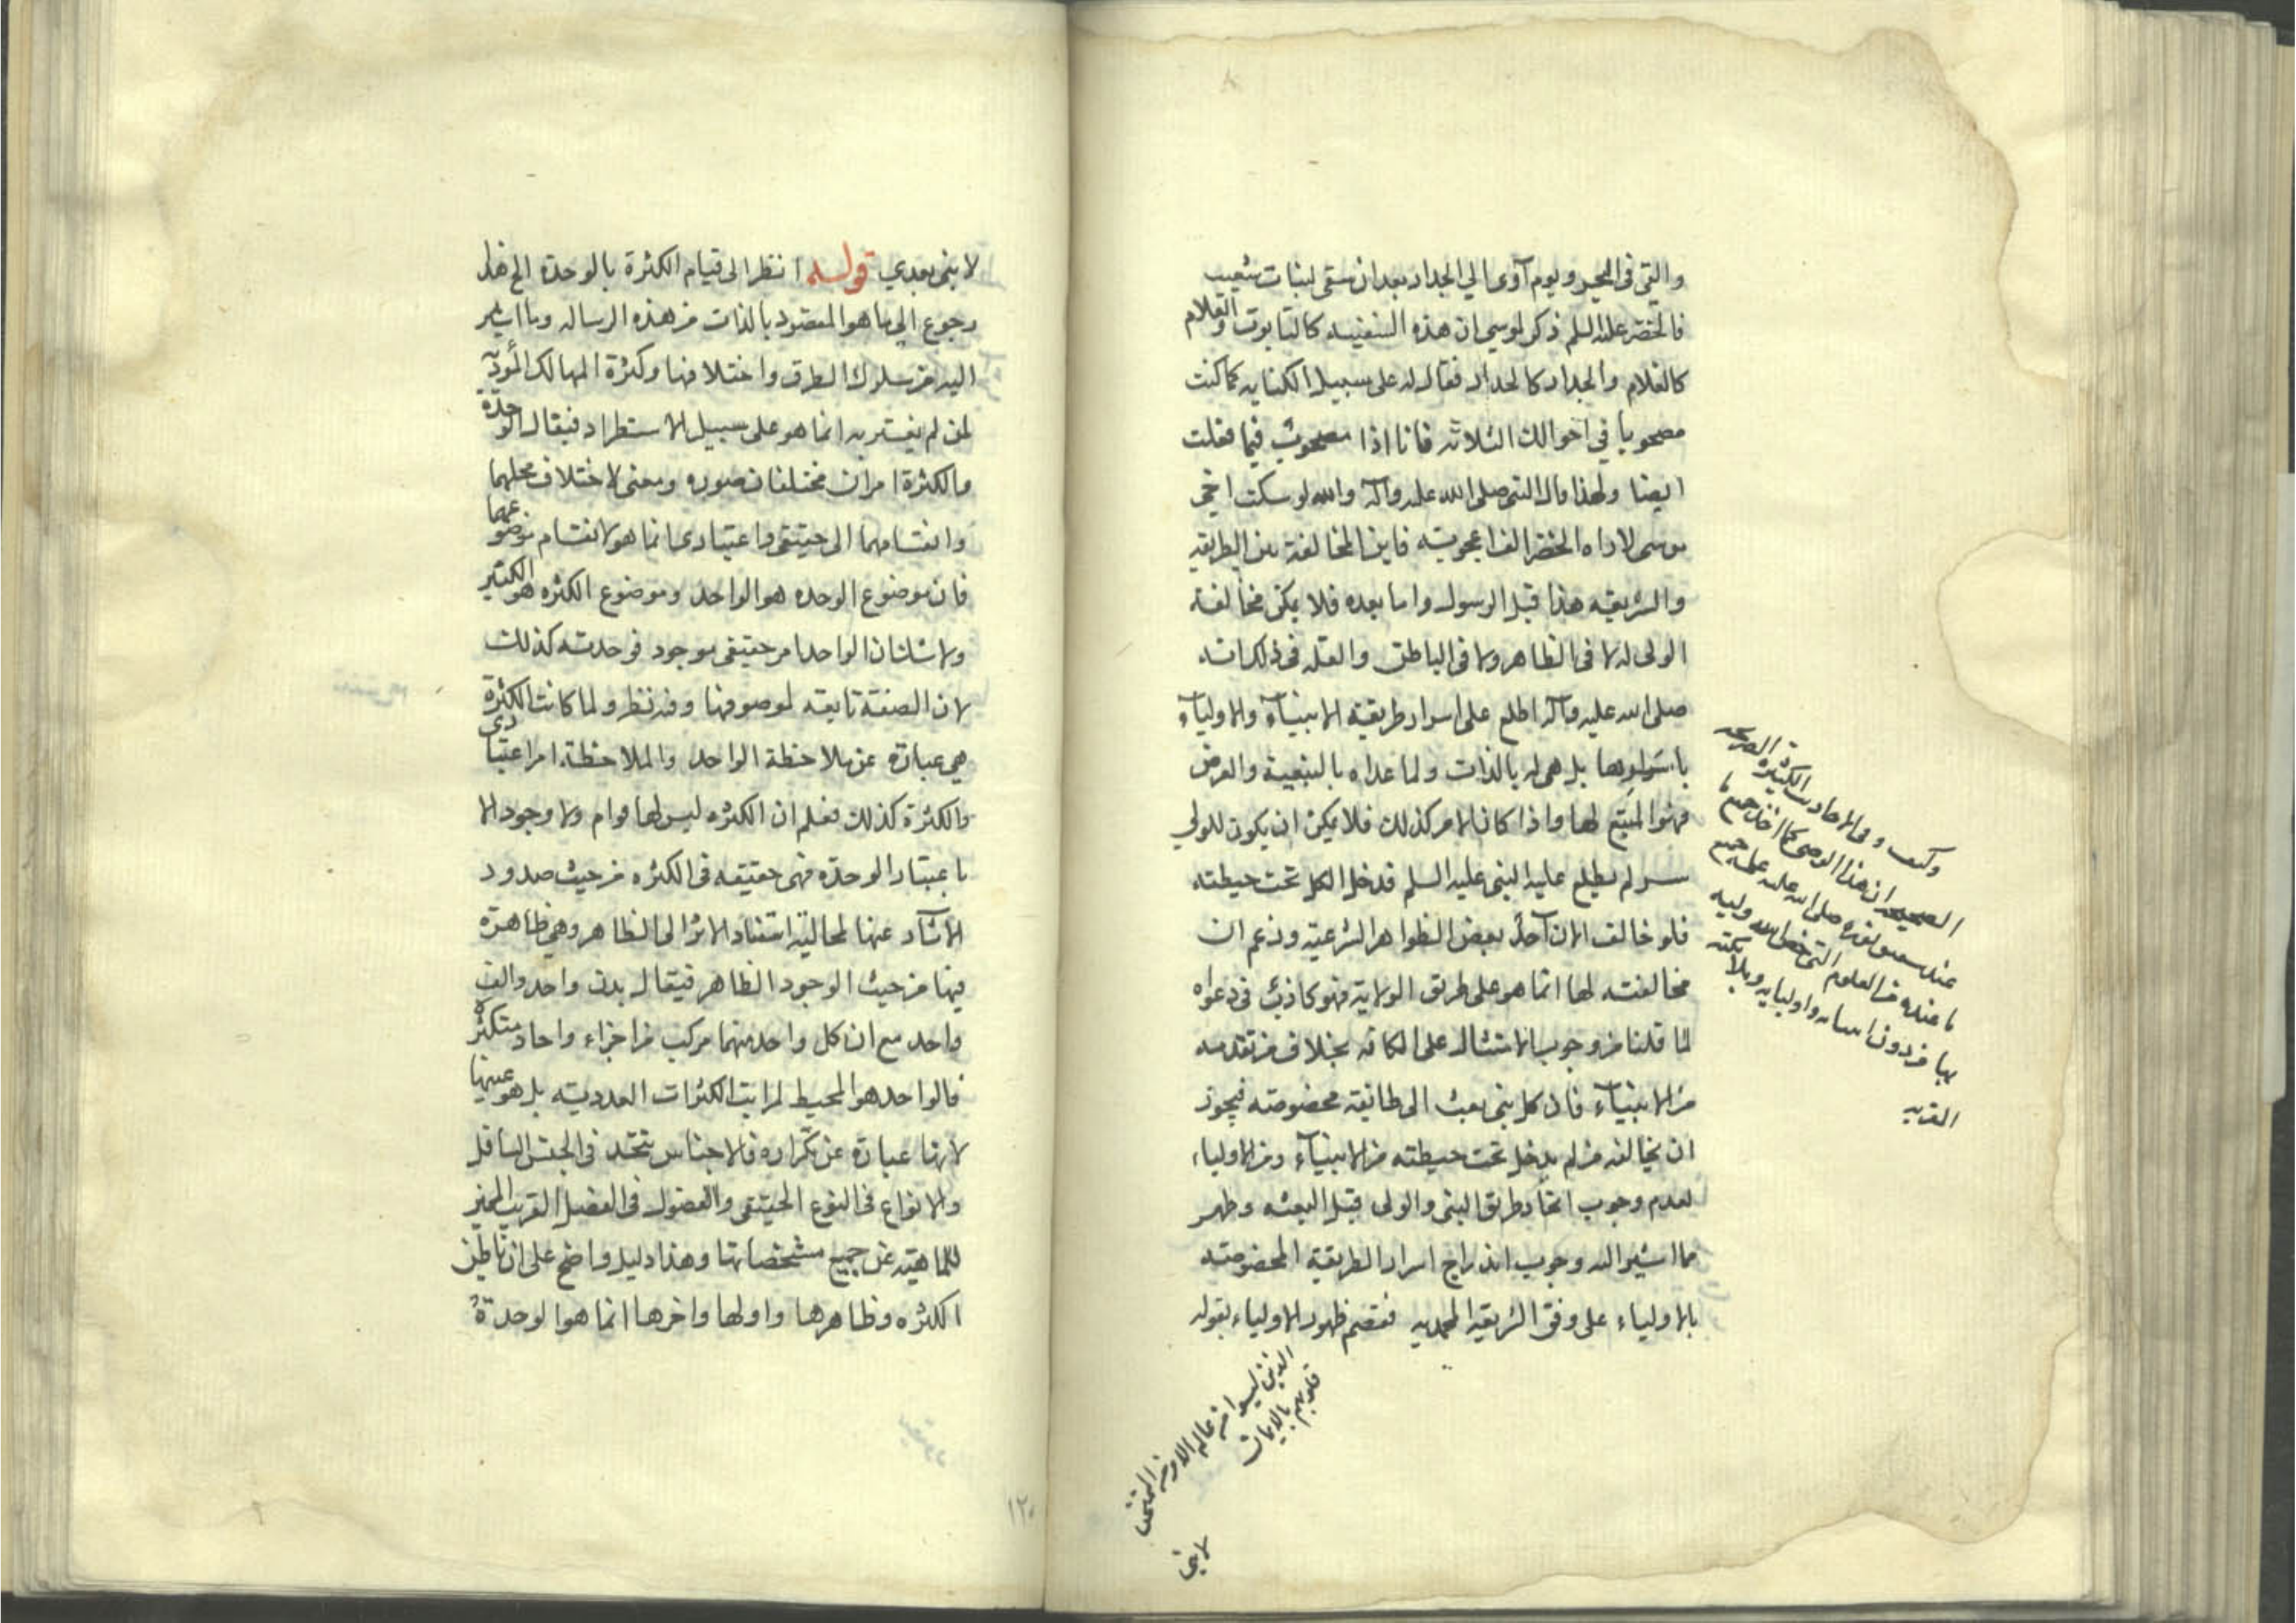 والتي في البحر ويوم آوى الي الجدار بعد ان سقى لبنات شعيب
فالخضر عليه السلم ذكر لموسي ان هذه السفينه كالتابوت والغلام
كالغلام والجدار كالجدار فقال له على سبيل الكنايه كما كنت
مصحوبا في احوالك الثلاثه فانا اذا مصحوب فيما فعلت
ايضا ولهذا قال النبي صلى الله عليه وآله والله لو سكت اخي
موسى لاراه الخضر الف اعجوبه فاين المخالفة بين الطريقه
والشريعه هذا قبل الرسول واما بعده فلا يمكن مخالفة
الولي له لا في الظاهر ولا في الباطن والعلة في ذلك انه
صلى الله عليه وآله اطلع على اسرار طريقة الانبيآء والاوليآء
باسرارها بل هي له بالذات ولما عداه بالتبعية والعرض
فهو المتبع لها واذا كان الامر كذلك فلا يمكن ان يكون للولي
سر لم يطلع عليه النبي عليه السلم فدخل الكل تحت حيطته
فلو خالف الان آحد بعض الظواهر الشرعيه وزعم ان
مخالفته لها انما هو على طريق الولاية فهو كاذب في دعواه
لما قلنا من وجوب الامتثال على الكافه بخلاف من تقدمه
من الانبيآء فان كل نبي بعث الى طائفة مخصوصه فيجوز
ان يخالفه من لم يدخل تحت حيطته من الانبيآء ومن الاولياء
لعدم وجوب اتحاد طريق النبي والولي قبل البعثه وظهر
مما اشير اليه وجوب اندراج اسرار الطريقة المخصوصه
بالاولياء على وفق الشريعة المحمديه فقصم ظهور الاولياء بقوله
وكيف وفي الاحاديث الكثيرة الصريحه
الصحيحه ان هذا الوصي كما اخذ جميع ما
عند صلى الله عليه جميع
ما عنده من العلوم التي خص الله وليه
بها من دون انبيائه واوليايه وملائكته
القريه
الذين ليسوا من عالم الامر الممتحن
قلوبهم بالايمان
لا نبي
لا نبي بعدي قوله انظر الى قيام الكثرة بالوحدة الخ هذا
رجوع الي ما هو المقصود بالذات من هذه الرساله وما اشير
اليه من سلوك الطرق واختلافها وكثرة المهالك المؤدية
لمن لم يفسر به انما هو على سبيل الاستطراد فيقال الوحدة
والكثرة امران مختلفان صوره ومعنى لاختلاف محلهما
وانقسامهما الى حقيقي واعتباري انما هو لانقسام موضوعهما
فان موضوع الوحده هو الواحد وموضوع الكثره هو الكثير
ولا شك ان الواحد امر حقيقي موجود فوحدته كذلك
لان الصفة تابعه لموصوفها وفيه نظر ولما كانت الكثرة
هي عبارة عن ملاحظة الواحد والملاحظة امر اعتباري
والكثرة كذلك فعلم ان الكثره ليس لها قوام ولا وجود الا
باعتبار الوحدة فهي حقيقه في الكثره من حيث صدور
الآثار عنها لمحالية استناد الاثر الى الظاهر وهي ظاهرة
فيها من حيث الوجود الظاهر فيقال بدن واحد والف
واحد مع ان كل واحد منهما مركب من اجزاء واحاد متكثرة
فالواحد هو المحيط لمراتب الكثرات العدديه بل هو عينها
لانها عبارة عن تكراره فالاجناس تتحد في الجنس السافل
والانواع في النوع الحقيقي والفصول في الفصل القريب المميز
للماهيه عن جميع مشخصاتها وهذا دليل واضح على ان باطن
الكثره وظاهرها واولها واخرها انما هو الوحدة
١٢٠